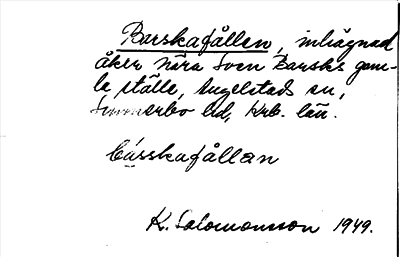 Barskafållen, inhägnad
åker nära Sven Barsks gam-
le ställe, Angelstads sn,
Sunnerbo hd, Krb. län.
básskafållan
K. Salomonsson 1949.